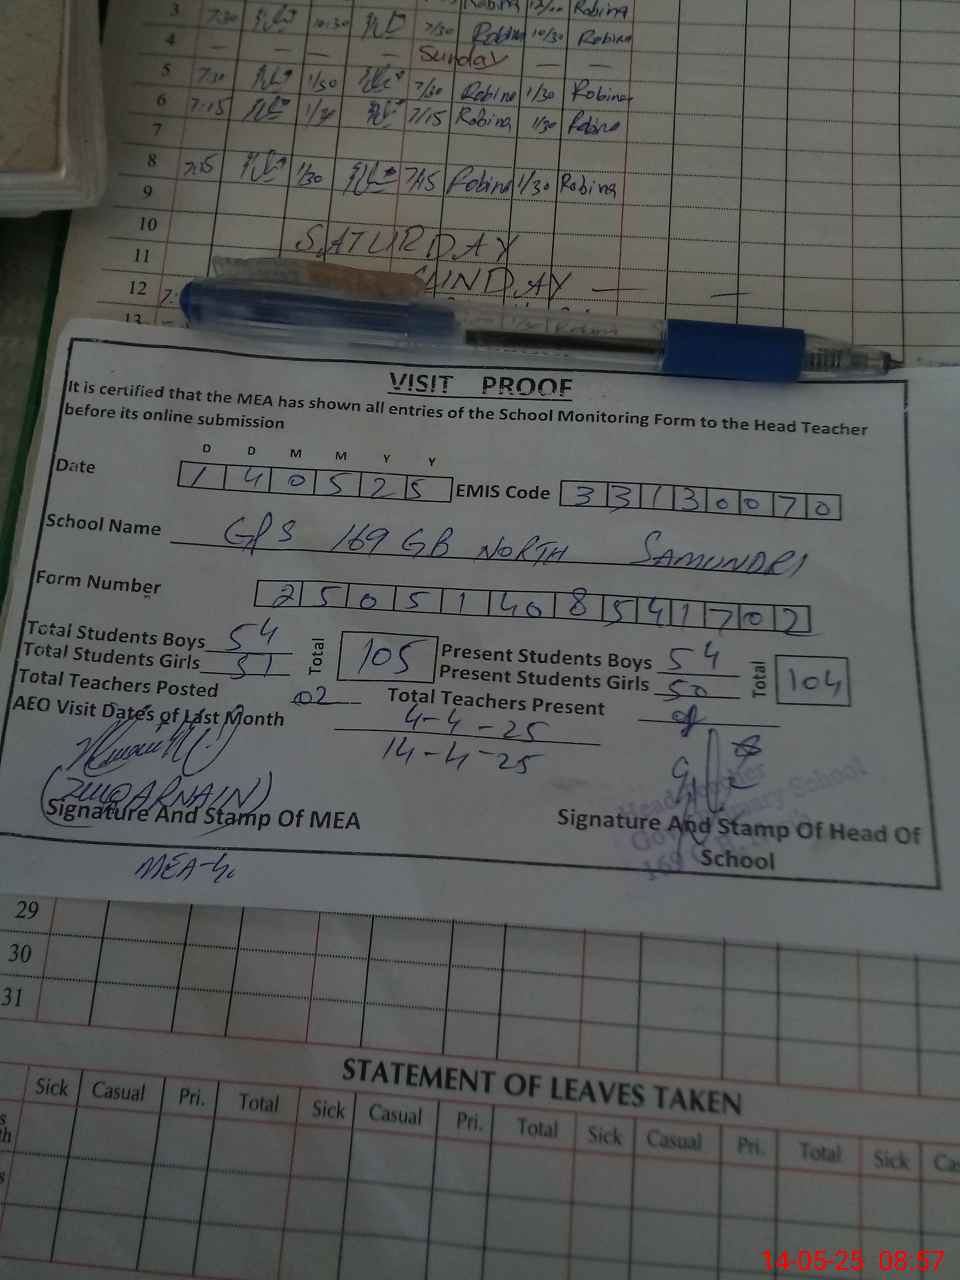 Robina 12/00 Robina
3 7:30 10:30 7/30 Robina 10/30 Robina
4 — — — — Sunday — —
5 7:30 1/30 7/30 Robina 1/30 Robina
6 7:15 1/30 7/15 Robina 1/30 Robina
7
8 7:15 1/30 7/15 Robina 1/30 Robina
9
10 SATURDAY
11 SUNDAY — —
12 7:
13 Robina
VISIT PROOF
It is certified that the MEA has shown all entries of the School Monitoring Form to the Head Teacher
before its online submission
D D M M Y Y
Date 1 4 0 5 2 5 EMIS Code 3 3 1 3 0 0 7 0
School Name GPS 169 GB NORTH SAMUNDRI
Form Number 2 5 0 5 1 4 0 8 5 4 1 7 0 2
Total Students Boys 54 Total 105 Present Students Boys 54 Total 104
Total Students Girls 51 Present Students Girls 50
Total Teachers Posted 02 Total Teachers Present
AEO Visit Dates of Last Month 4-4-25
14-4-25
(ZULQARNAIN)
Head Teacher
Primary School
169
Signature And Stamp Of MEA
Signature And Stamp Of Head Of
School
MEA-
29
30
31
STATEMENT OF LEAVES TAKEN
Sick Casual Pri. Total Sick Casual Pri. Total Sick Casual Pri. Total Sick Cas
14-05-25 08:57